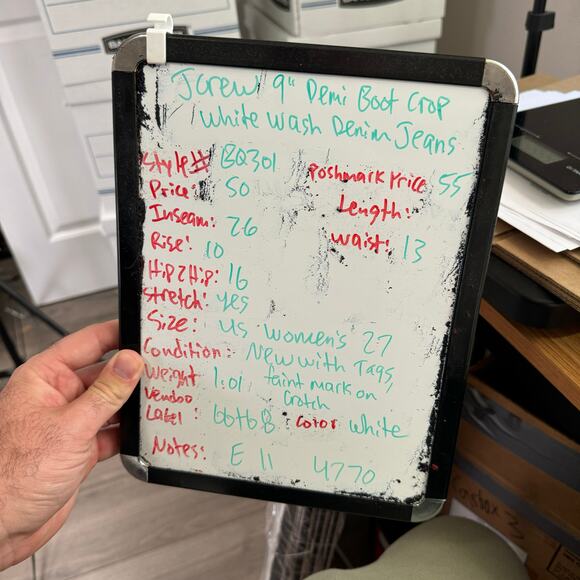 Jcrew 9" Demi Boot Crop
white wash Denim Jeans
Style# BQ301
Poshmark Price: 55
Price: 50
Length:
Inseam: 26
waist: 13
Rise: 10
Hip 2 Hip: 16
Stretch: yes
Size: US Women's 27
Condition: New with Tags,
faint mark on
Crotch
Weight 1:01
Vendoo
Label: Color white
Notes: E 11 4770